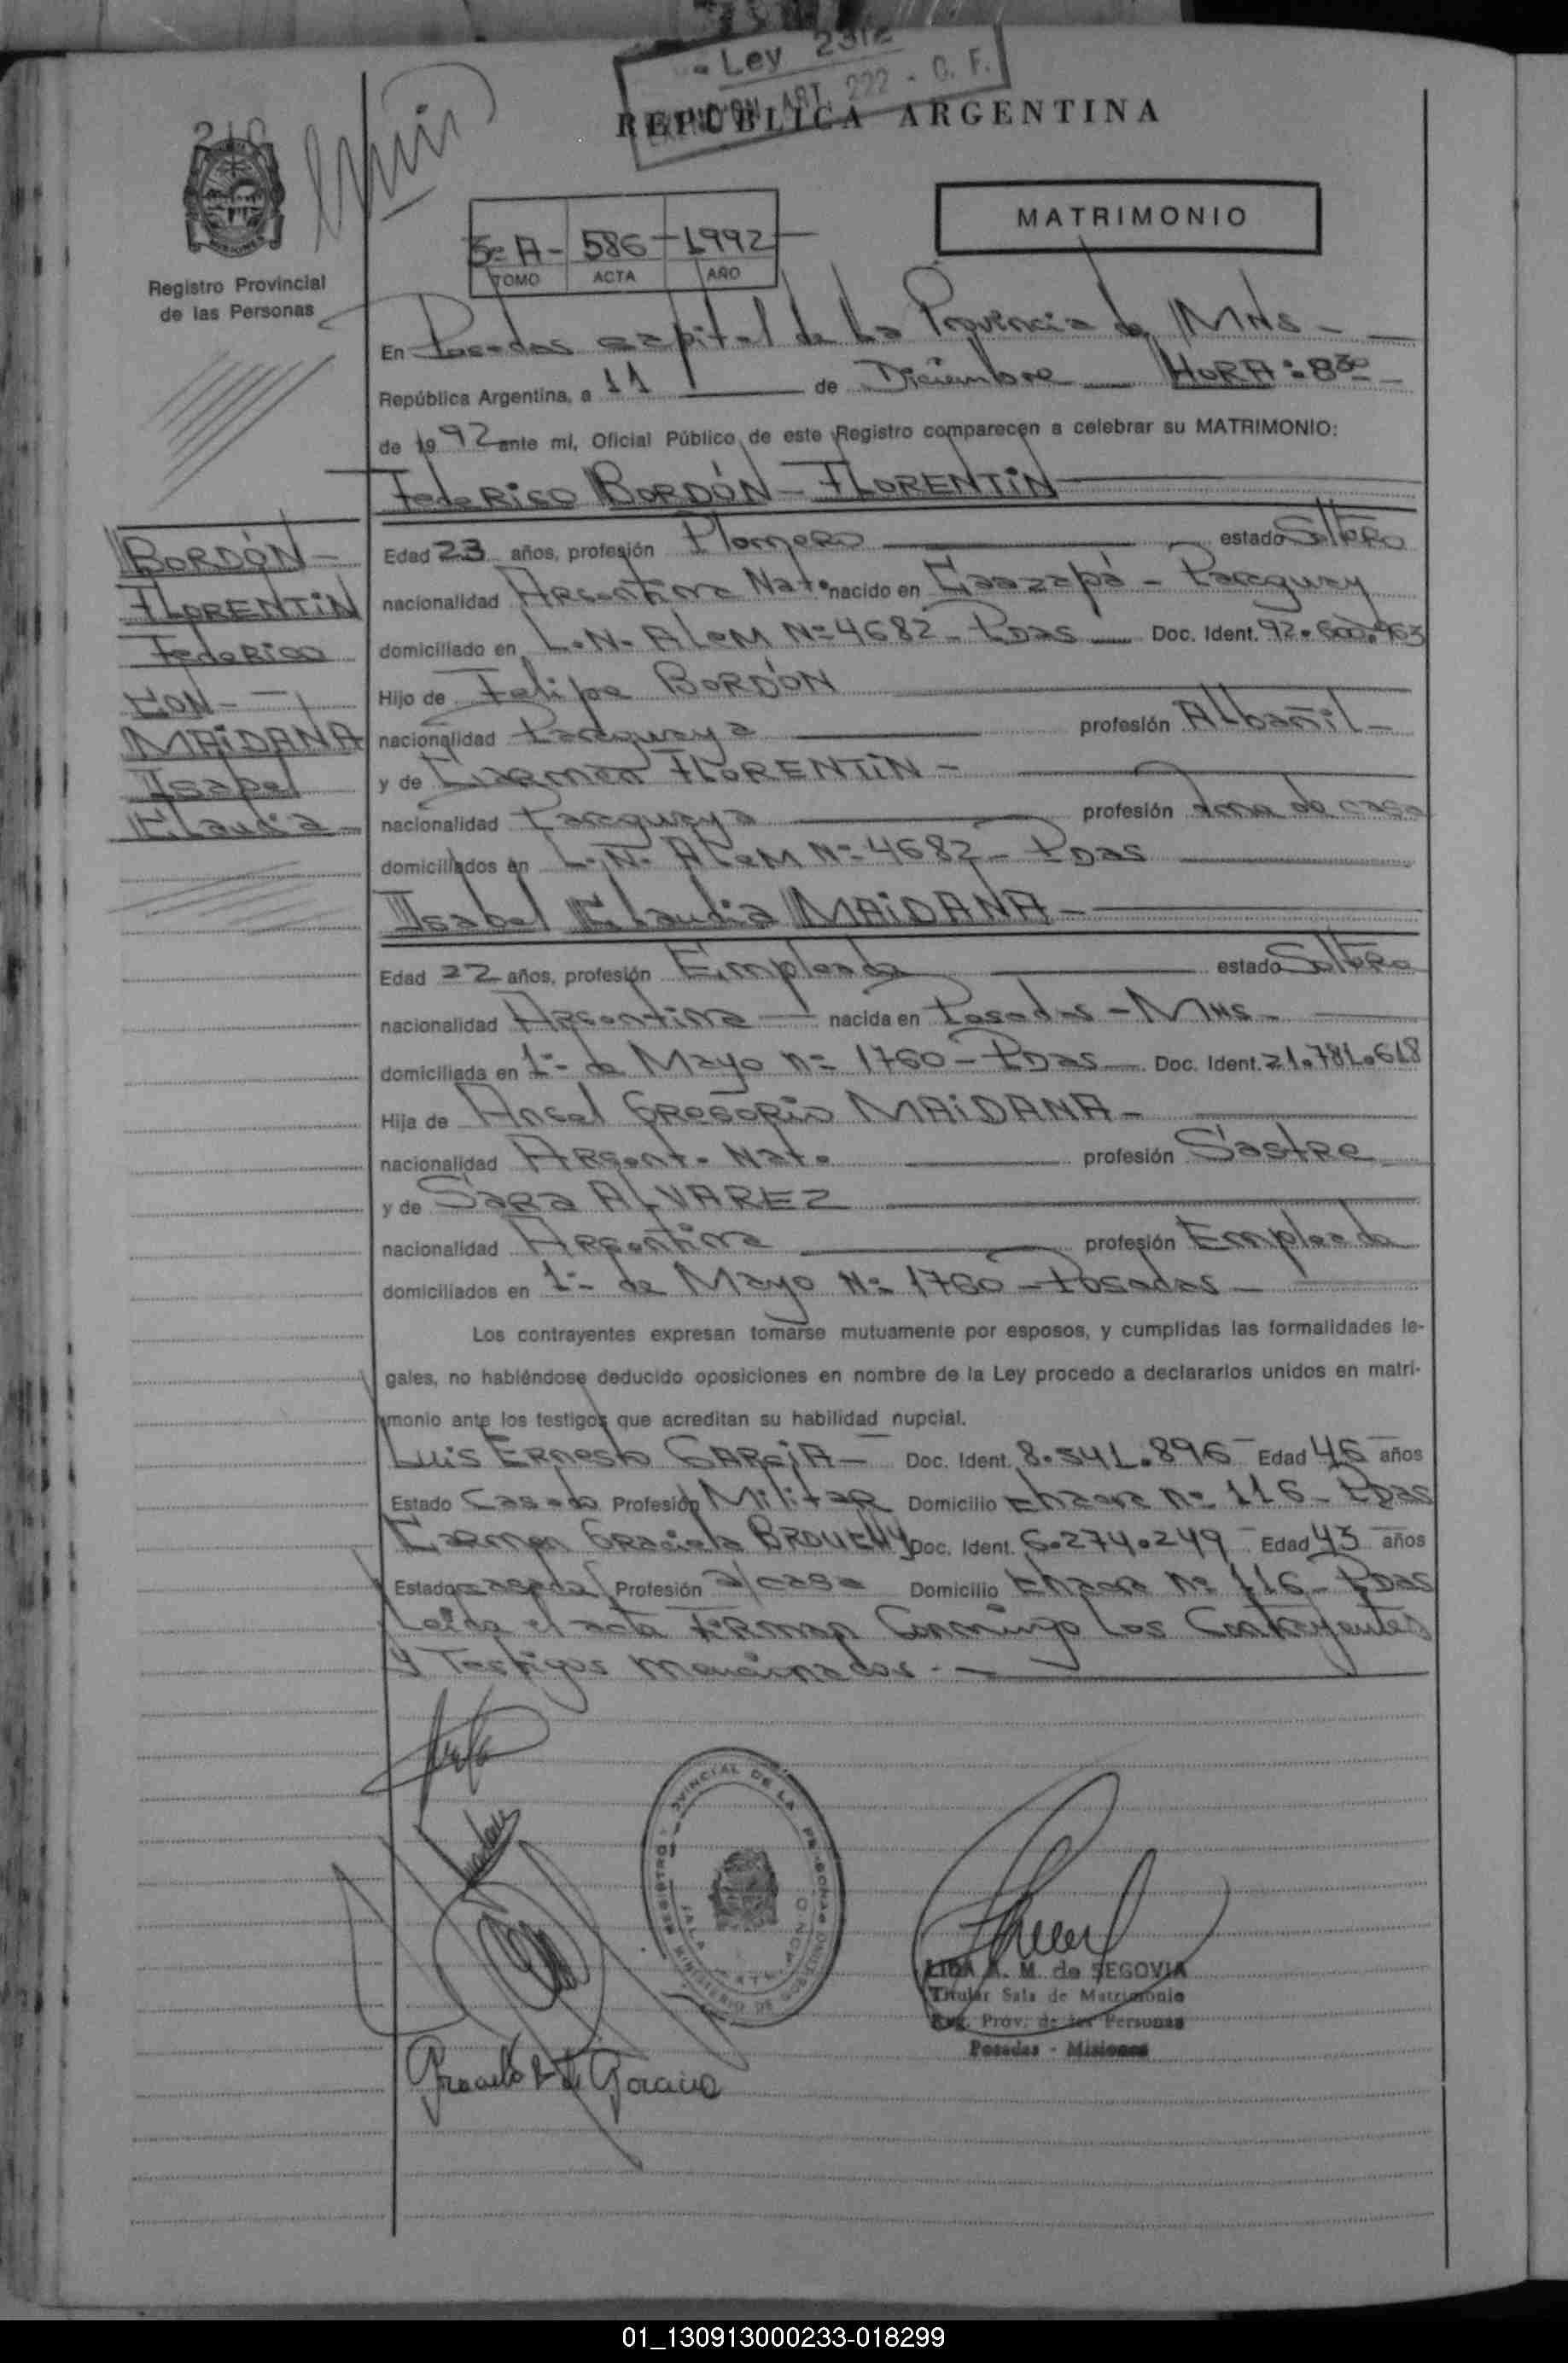 - Ley 2312
EXENCION ART. 222 - C. F.
REPÚBLICA ARGENTINA
210
MATRIMONIO
5º A - 586 - 1992
TOMO ACTA AÑO
Registro Provincial
de las Personas
En Posadas capital de La Provincia de Mns -
República Argentina, a 11 de Diciembre HORA: 8 30 -
de 1992 ante mí, Oficial Público de este Registro comparecen a celebrar su MATRIMONIO:
Federico BORDÓN - FLORENTIN
BORDÓN -
FLORENTIN
Federico
CON -
MAIDANA
Isabel
Claudia
Edad 23 años, profesión Plomero estado Soltero
nacionalidad Argentina Nat. nacido en Caazapá - Paraguay
domiciliado en L. N. Alem Nº 4682 - Pdas Doc. Ident. 92.600.963
Hijo de Felipe BORDÓN
nacionalidad Paraguaya profesión Albañil -
y de Carmen FLORENTIN -
nacionalidad Paraguaya profesión Ama de casa
domiciliados en L. N. Alem Nº 4682 - Pdas
Isabel Claudia MAIDANA -
Edad 22 años, profesión Empleada estado Soltera
nacionalidad Argentina nacida en Posadas - Mns -
domiciliada en 1º de Mayo nº 1760 - Pdas Doc. Ident. 21.781.618
Hija de Angel Gregorio MAIDANA -
nacionalidad Argent. Nat. profesión Sastre
y de Sara ALVAREZ
nacionalidad Argentina profesión Empleada
domiciliados en 1º de Mayo Nº 1760 - Posadas
Los contrayentes expresan tomarse mutuamente por esposos, y cumplidas las formalidades le-
gales, no habiéndose deducido oposiciones en nombre de la Ley procedo a declararlos unidos en matri-
monio ante los testigos que acreditan su habilidad nupcial.
Luis Ernesto GARCIA - Doc. Ident. 8.541.896 Edad 46 años
Estado Casado Profesión Militar Domicilio Chacra Nº 116 - Pdas
Carmen Graciela Doc. Ident. 6.274.249 Edad 43 años
Estado casada Profesión a/casa Domicilio Chacra Nº 116 - Pdas
Leida el acta firman Conmigo Los Contrayentes
y Testigos mencionados. -
REGISTRO PROVINCIAL DE LAS PERSONAS
MINISTERIO DE GOBIERNO
LIDA A. M. de SEGOVIA
Titular Sala de Matrimonio
Reg. Prov. de las Personas
Posadas - Misiones
Graciela B de Garcia
01_130913000233-018299